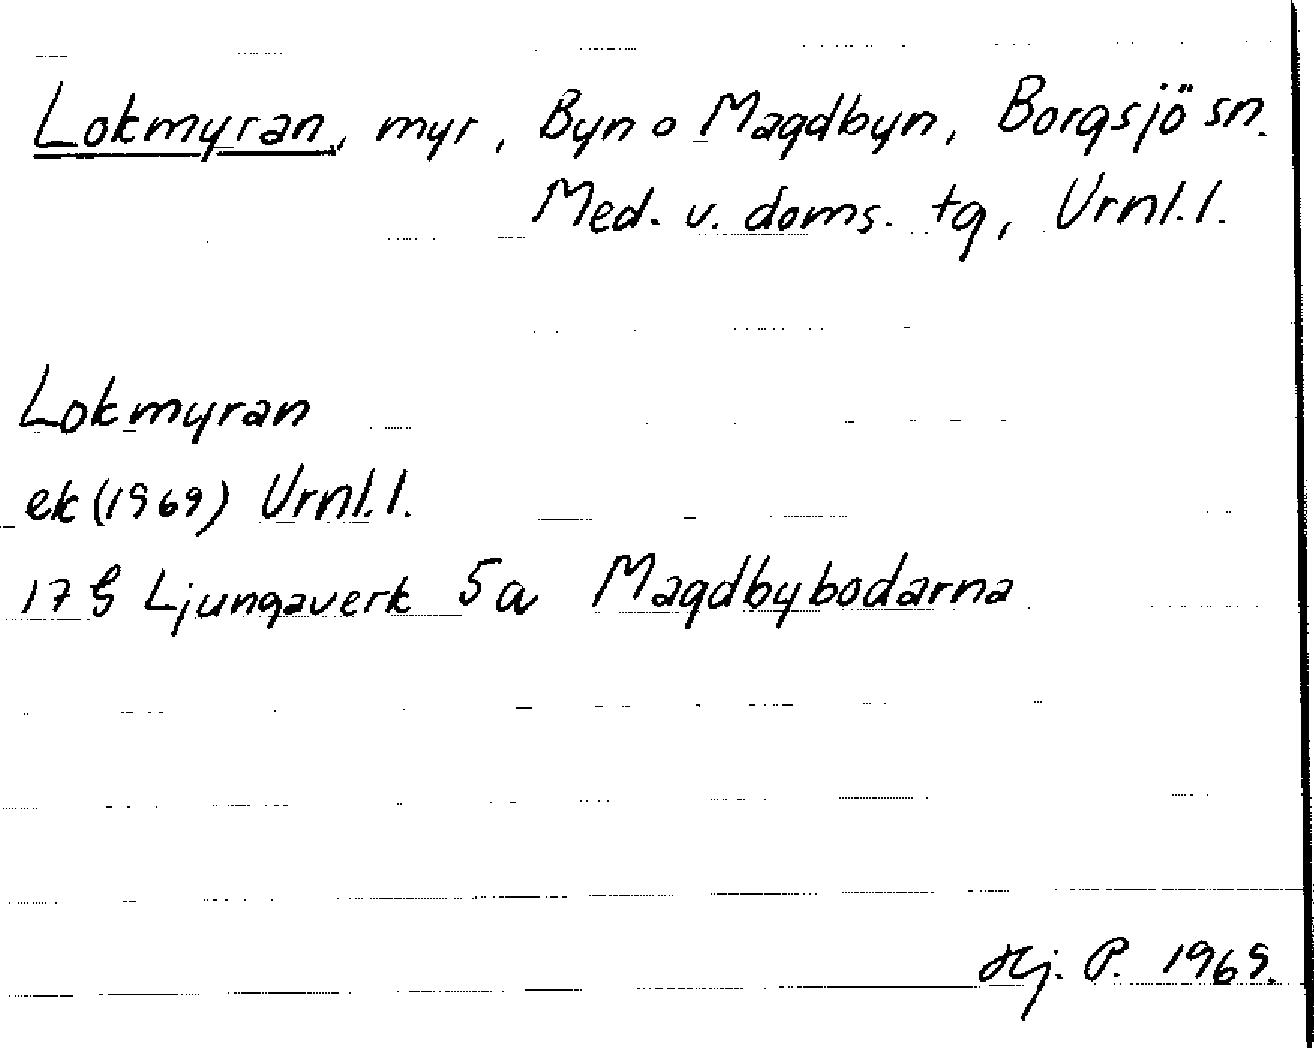 Lokmyran, myr, Byn o Magdbyn, Borgsjö sn.
Med. v. doms. tg, Vrnl. l.
Lokmyran
ek (1969) Vrnl. l.
17 G Ljungaverk 5a Magdbybodarna
Hj. P. 1969.